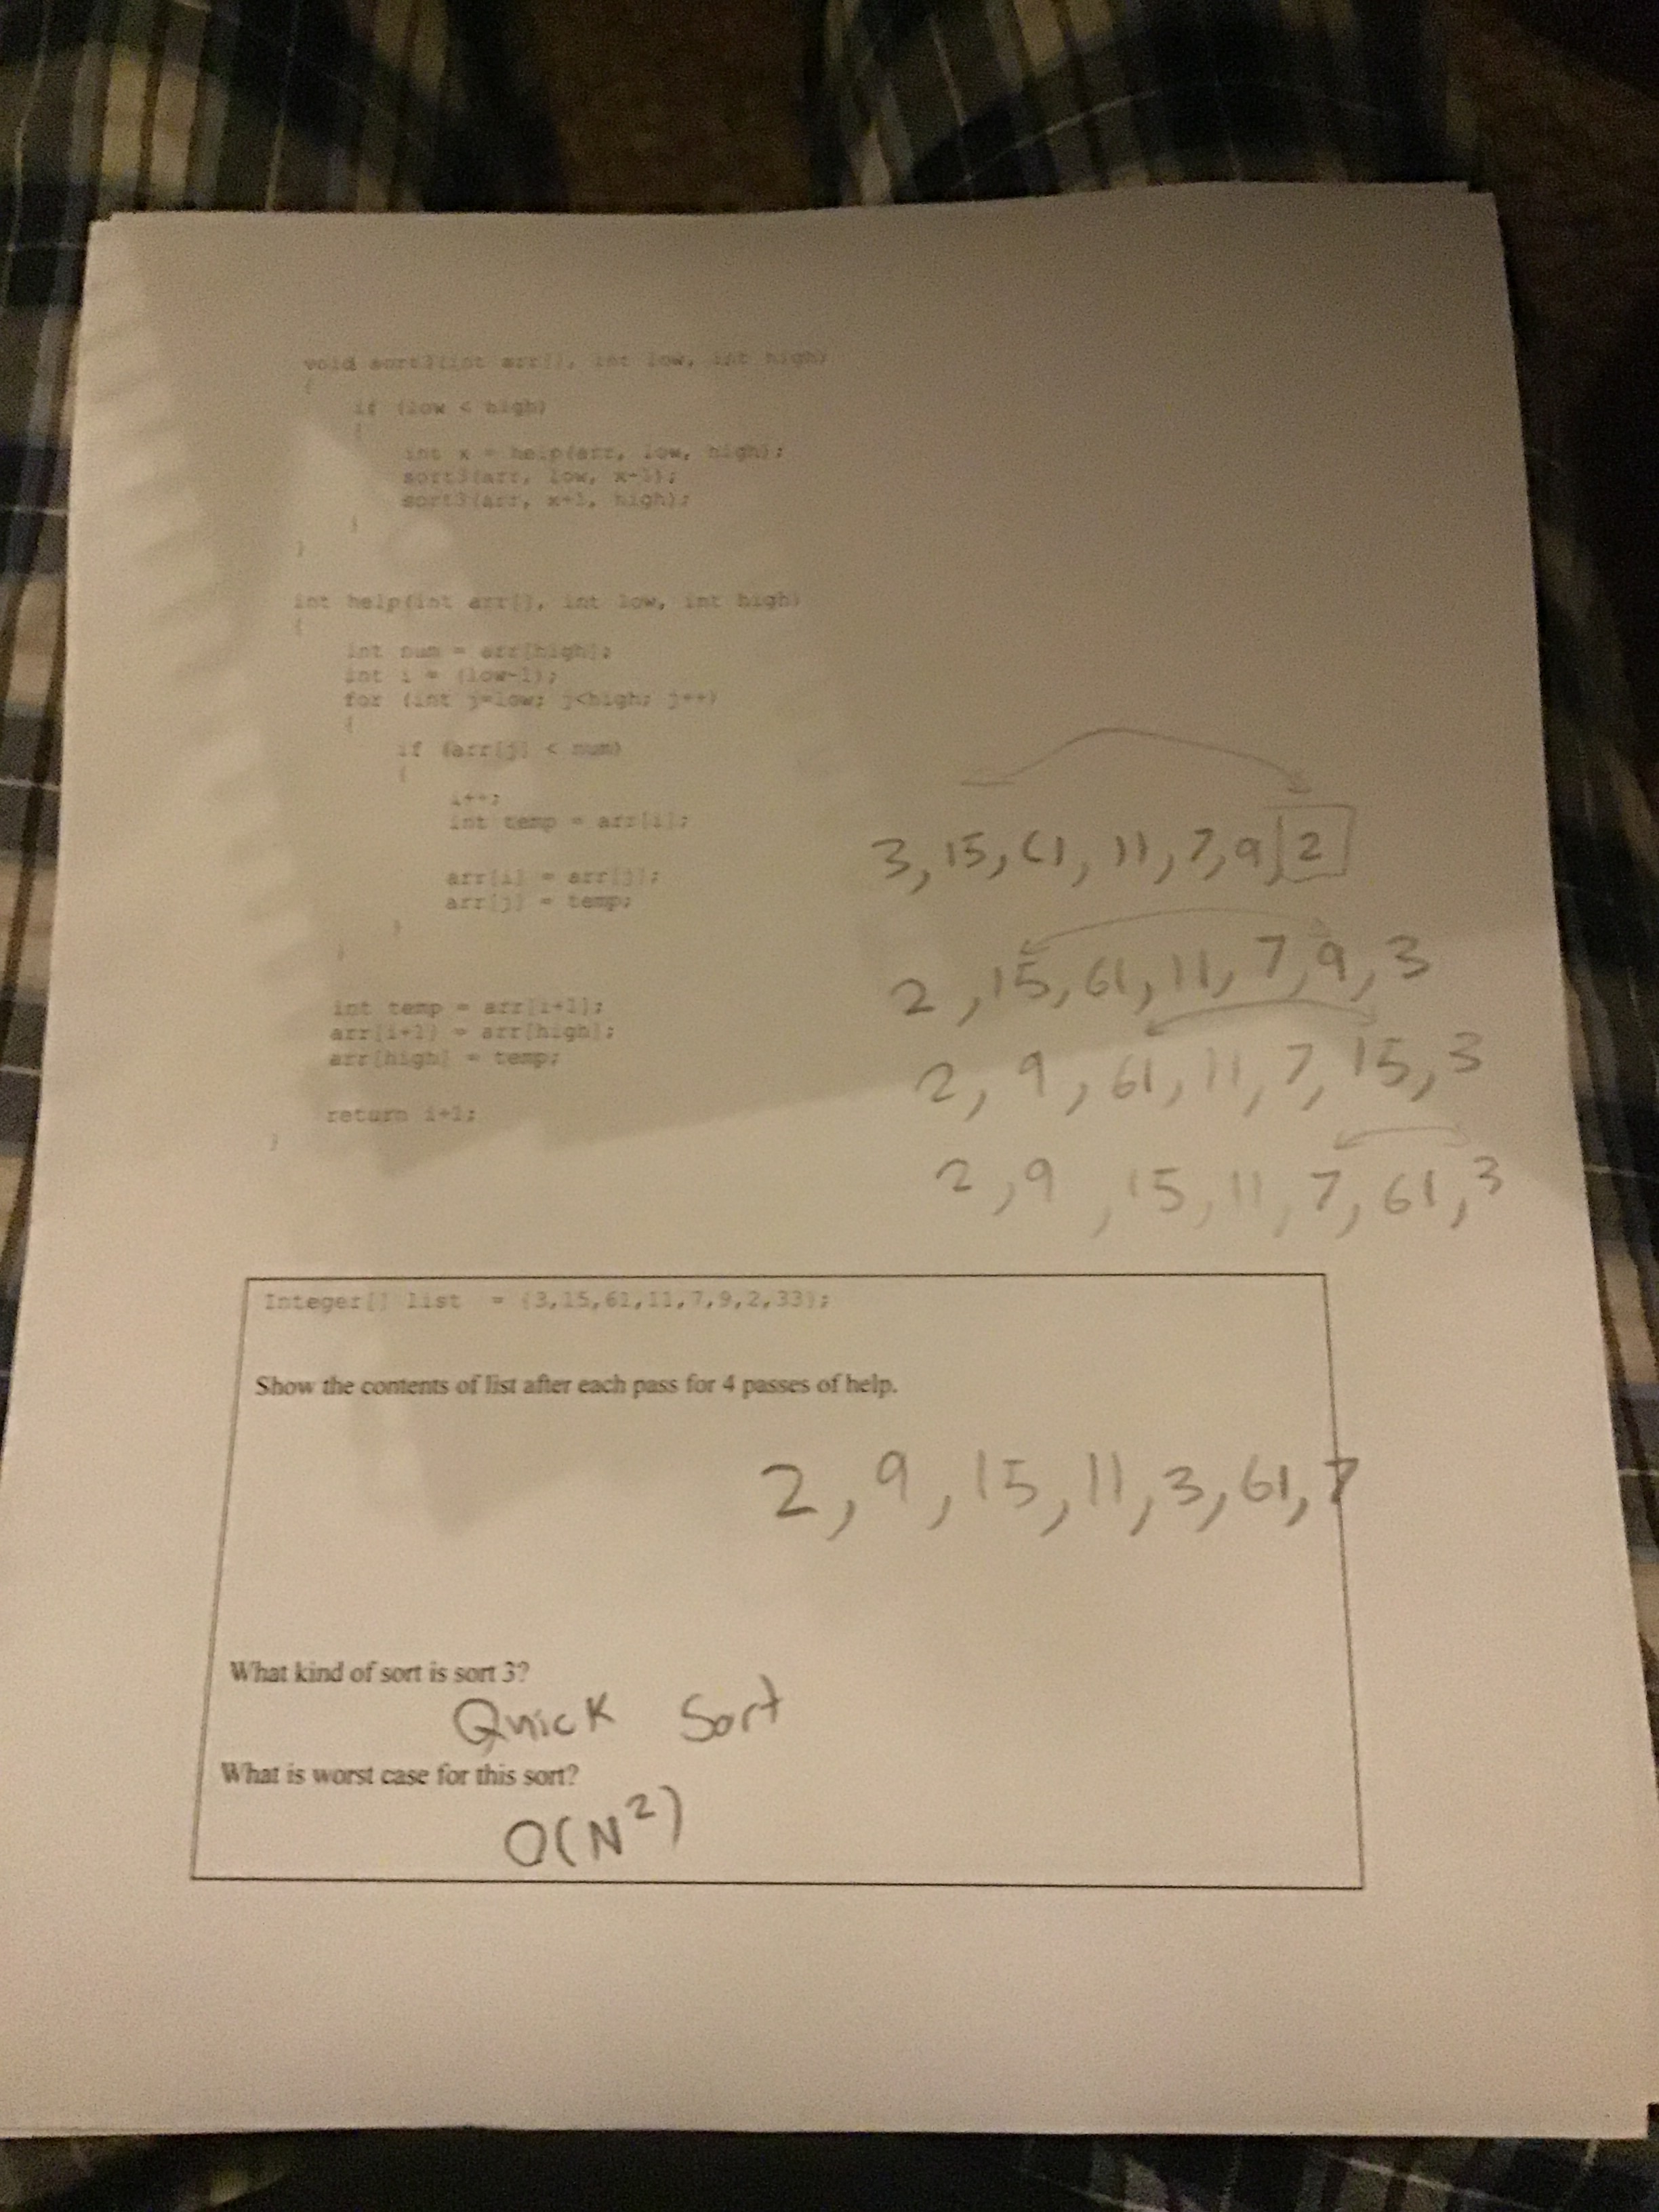 void sort3(int arr[], int low, int high)
{
if (low < high)
{
int x = help(arr, low, high);
sort3(arr, low, x-1);
sort3(arr, x+1, high);
}
}
int help(int arr[], int low, int high)
{
int num = arr[high];
int i = (low-1);
for (int j=low; j<high; j++)
{
if (arr[j] < num)
{
i++;
int temp = arr[i];
arr[i] = arr[j];
arr[j] = temp;
}
}
int temp = arr[i+1];
arr[i+1] = arr[high];
arr[high] = temp;
return i+1;
}
3, 15, 61, 11, 7, 9, 2
2, 15, 61, 11, 7, 9, 3
2, 9, 61, 11, 7, 15, 3
2, 9, 15, 11, 7, 61, 3
Integer[] list = {3,15,61,11,7,9,2,33};
Show the contents of list after each pass for 4 passes of help.
2, 9, 15, 11, 3, 61, 7
What kind of sort is sort 3?
Quick Sort
What is worst case for this sort?
O(N²)